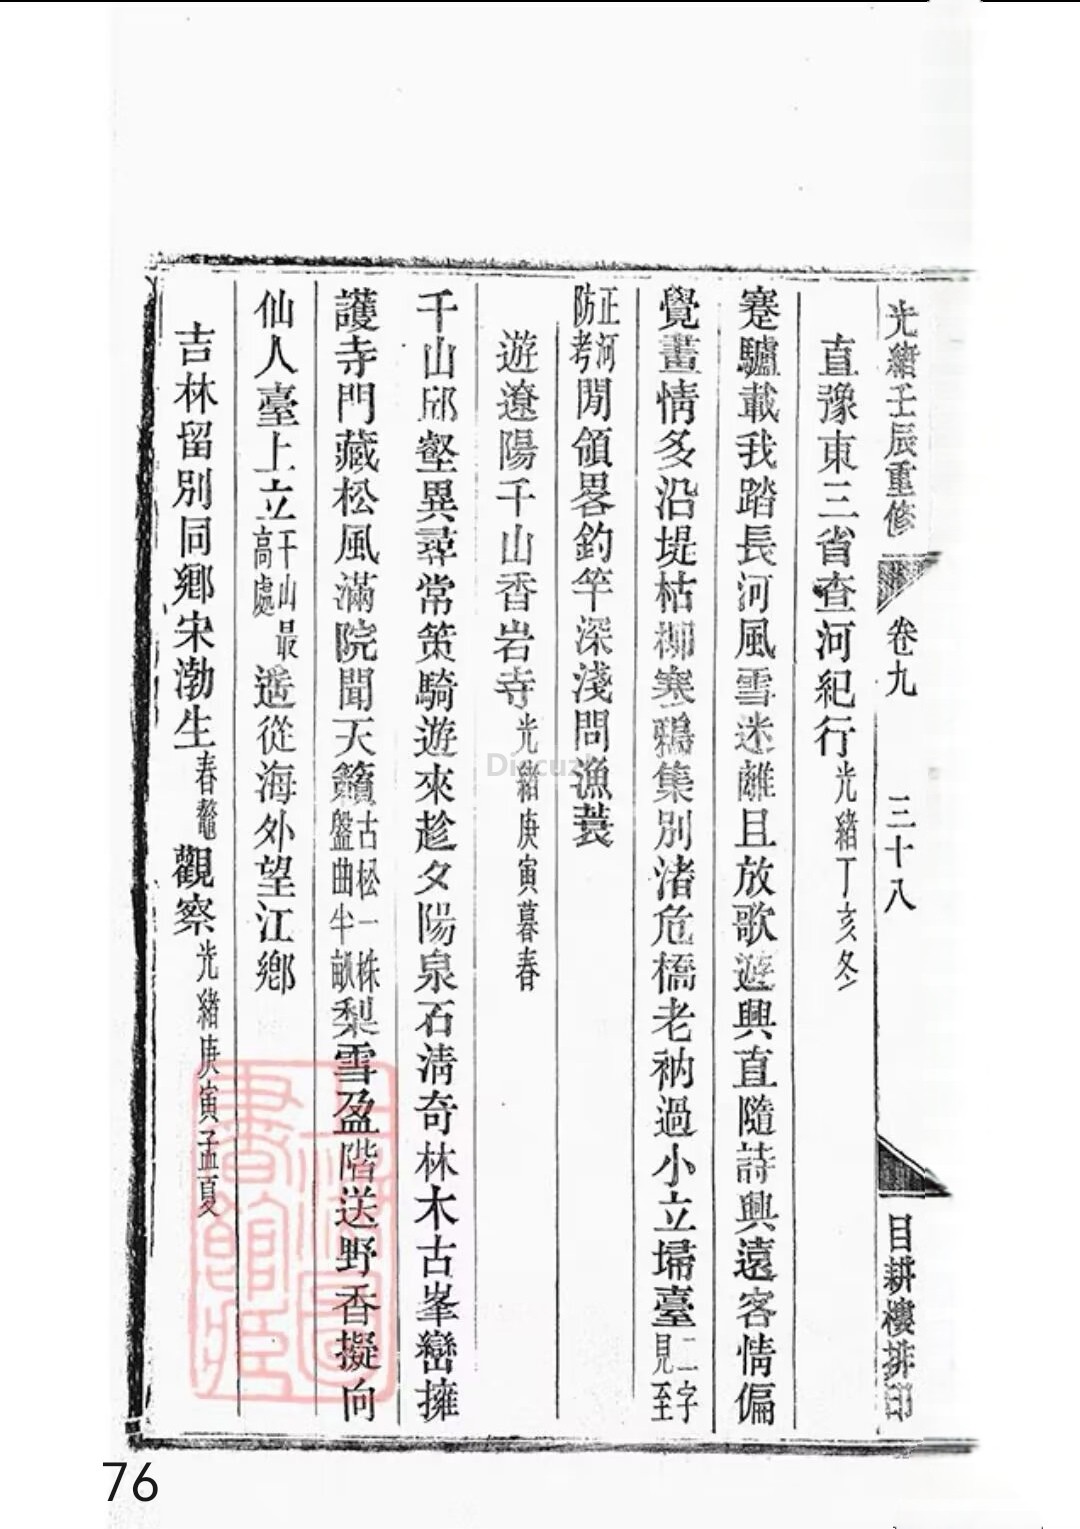 光緒壬辰重修 卷九 三十八 目耕樓排印
直豫東三省查河紀行光緒丁亥冬
蹇驢載我踏長河風雪迷離且放歌遊興直隨詩興遠客情偏
覺畫情多沿堤枯柳寒鴉集別渚危橋老衲過小立埽臺二字見至
正河防考閒領畧釣竿深淺問漁蓑
遊遼陽千山香岩寺光緒庚寅暮春
千山邱壑異尋常策騎遊來趁夕陽泉石淸奇林木古峯巒擁
護寺門藏松風滿院聞天籟古松一株盤曲半畝梨雪盈階送野香擬向
仙人臺上立千山最高處遥從海外望江鄉
吉林留別同鄉宋渤生春鼇觀察光緒庚寅孟夏
上海圖
書館藏
Discuz!
76